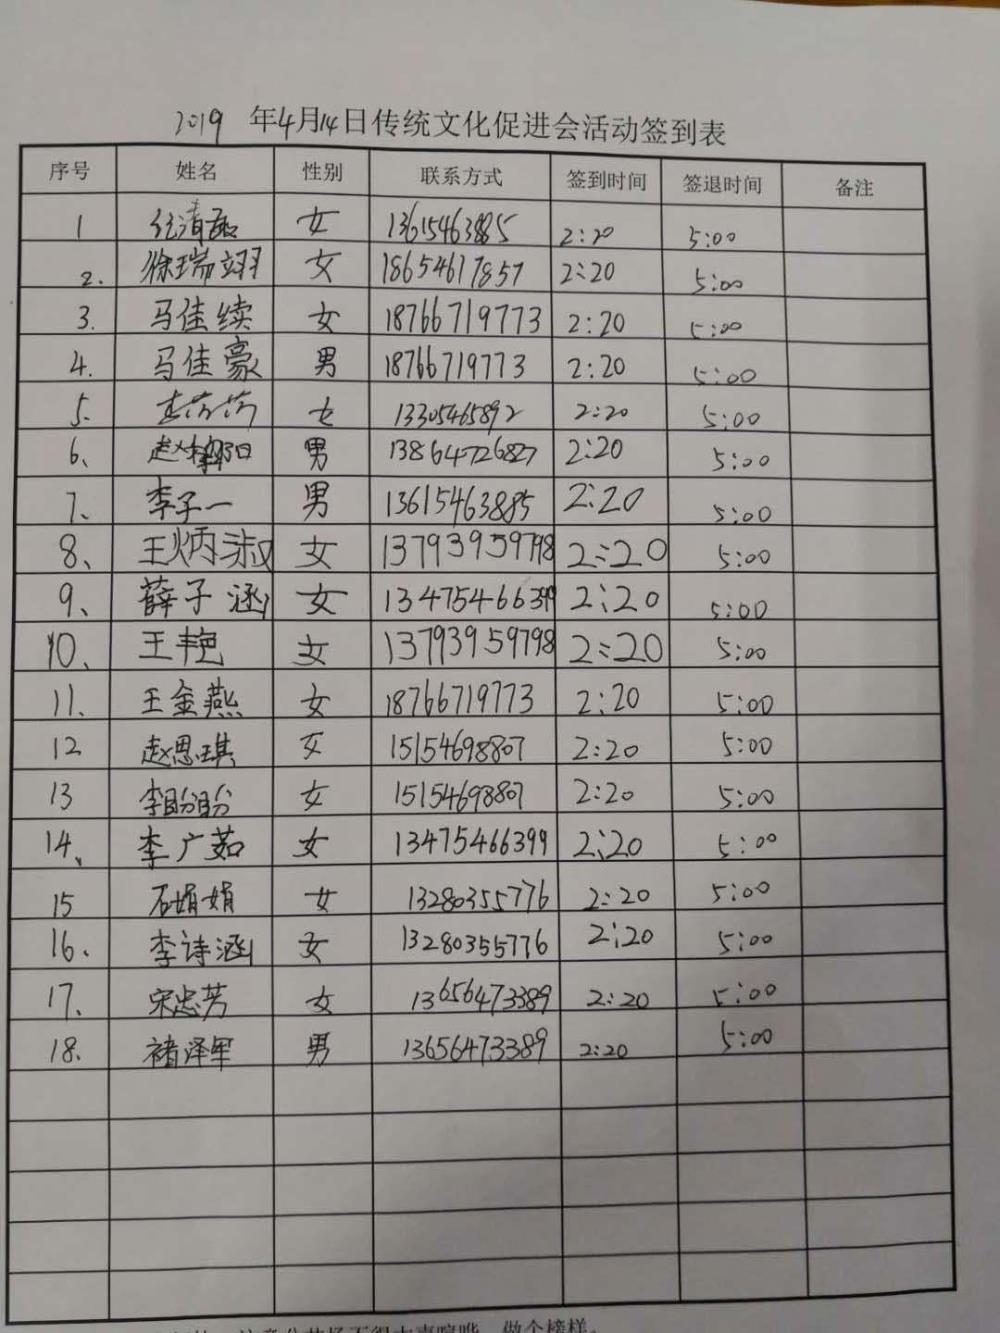 2019 年4月14日传统文化促进会活动签到表
序号 姓名 性别 联系方式 签到时间 签退时间 备注
1 女 13615463885 2:20 5:00
2. 徐瑞翊 女 18654617857 2:20 5:00
3. 马佳续 女 18766719773 2:20 5:00
4. 马佳豪 男 18766719773 2:20 5:00
5. 女 13305465892 2:20 5:00
6、 男 13864726827 2:20 5:00
7、 李子一 男 13615463885 2:20 5:00
8、 王炳淑 女 13793959798 2:20 5:00
9、 薛子涵 女 13475466399 2:20 5:00
10、 王艳 女 13793959798 2:20 5:00
11、 王金燕 女 18766719773 2:20 5:00
12 赵思琪 女 15154698807 2:20 5:00
13 李盼盼 女 15154698807 2:20 5:00
14、 李广茹 女 13475466399 2:20 5:00
15 石娟娟 女 13280355776 2:20 5:00
16. 李诗涵 女 13280355776 2:20 5:00
17. 宋忠芳 女 13656473389 2:20 5:00
18. 褚泽军 男 13656473389 2:20 5:00
做个榜样。